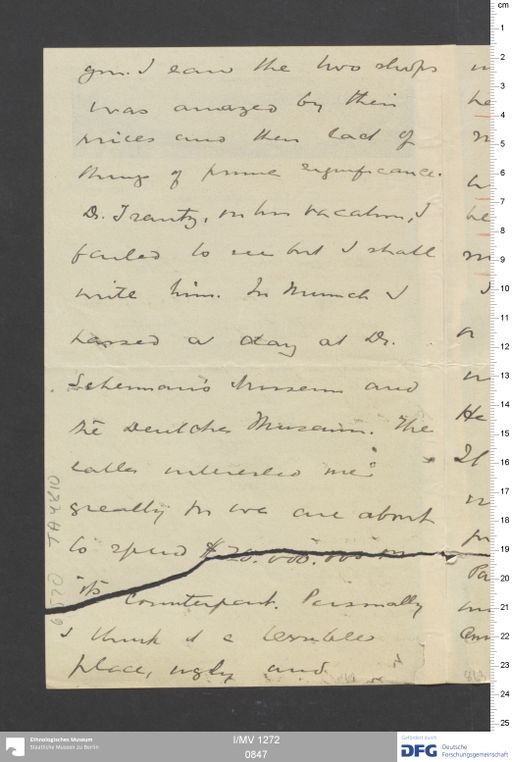 gm. I saw the two shops
was amazed by their
prices and their lack of
things of prime significance.
Dr. Trautz, on his vacation, I
failed to see but I shall
write him. In Munich I
passed a day at Dr.
Scherman's Museum and
the Deutches Museum. The
latter interested me
greatly for we are about
to spend $20.000.000 on
its counterpart. Personally
I think it a terrible
place, ugly and
TA 4810
He
If
cm
1
2
3
4
5
6
7
8
9
10
11
12
13
14
15
16
17
18
19
20
21
22
23
24
25
Ethnologisches Museum
Staatliche Museen zu Berlin
I/MV 1272
0847
Gefördert durch
DFG Deutsche
Forschungsgemeinschaft